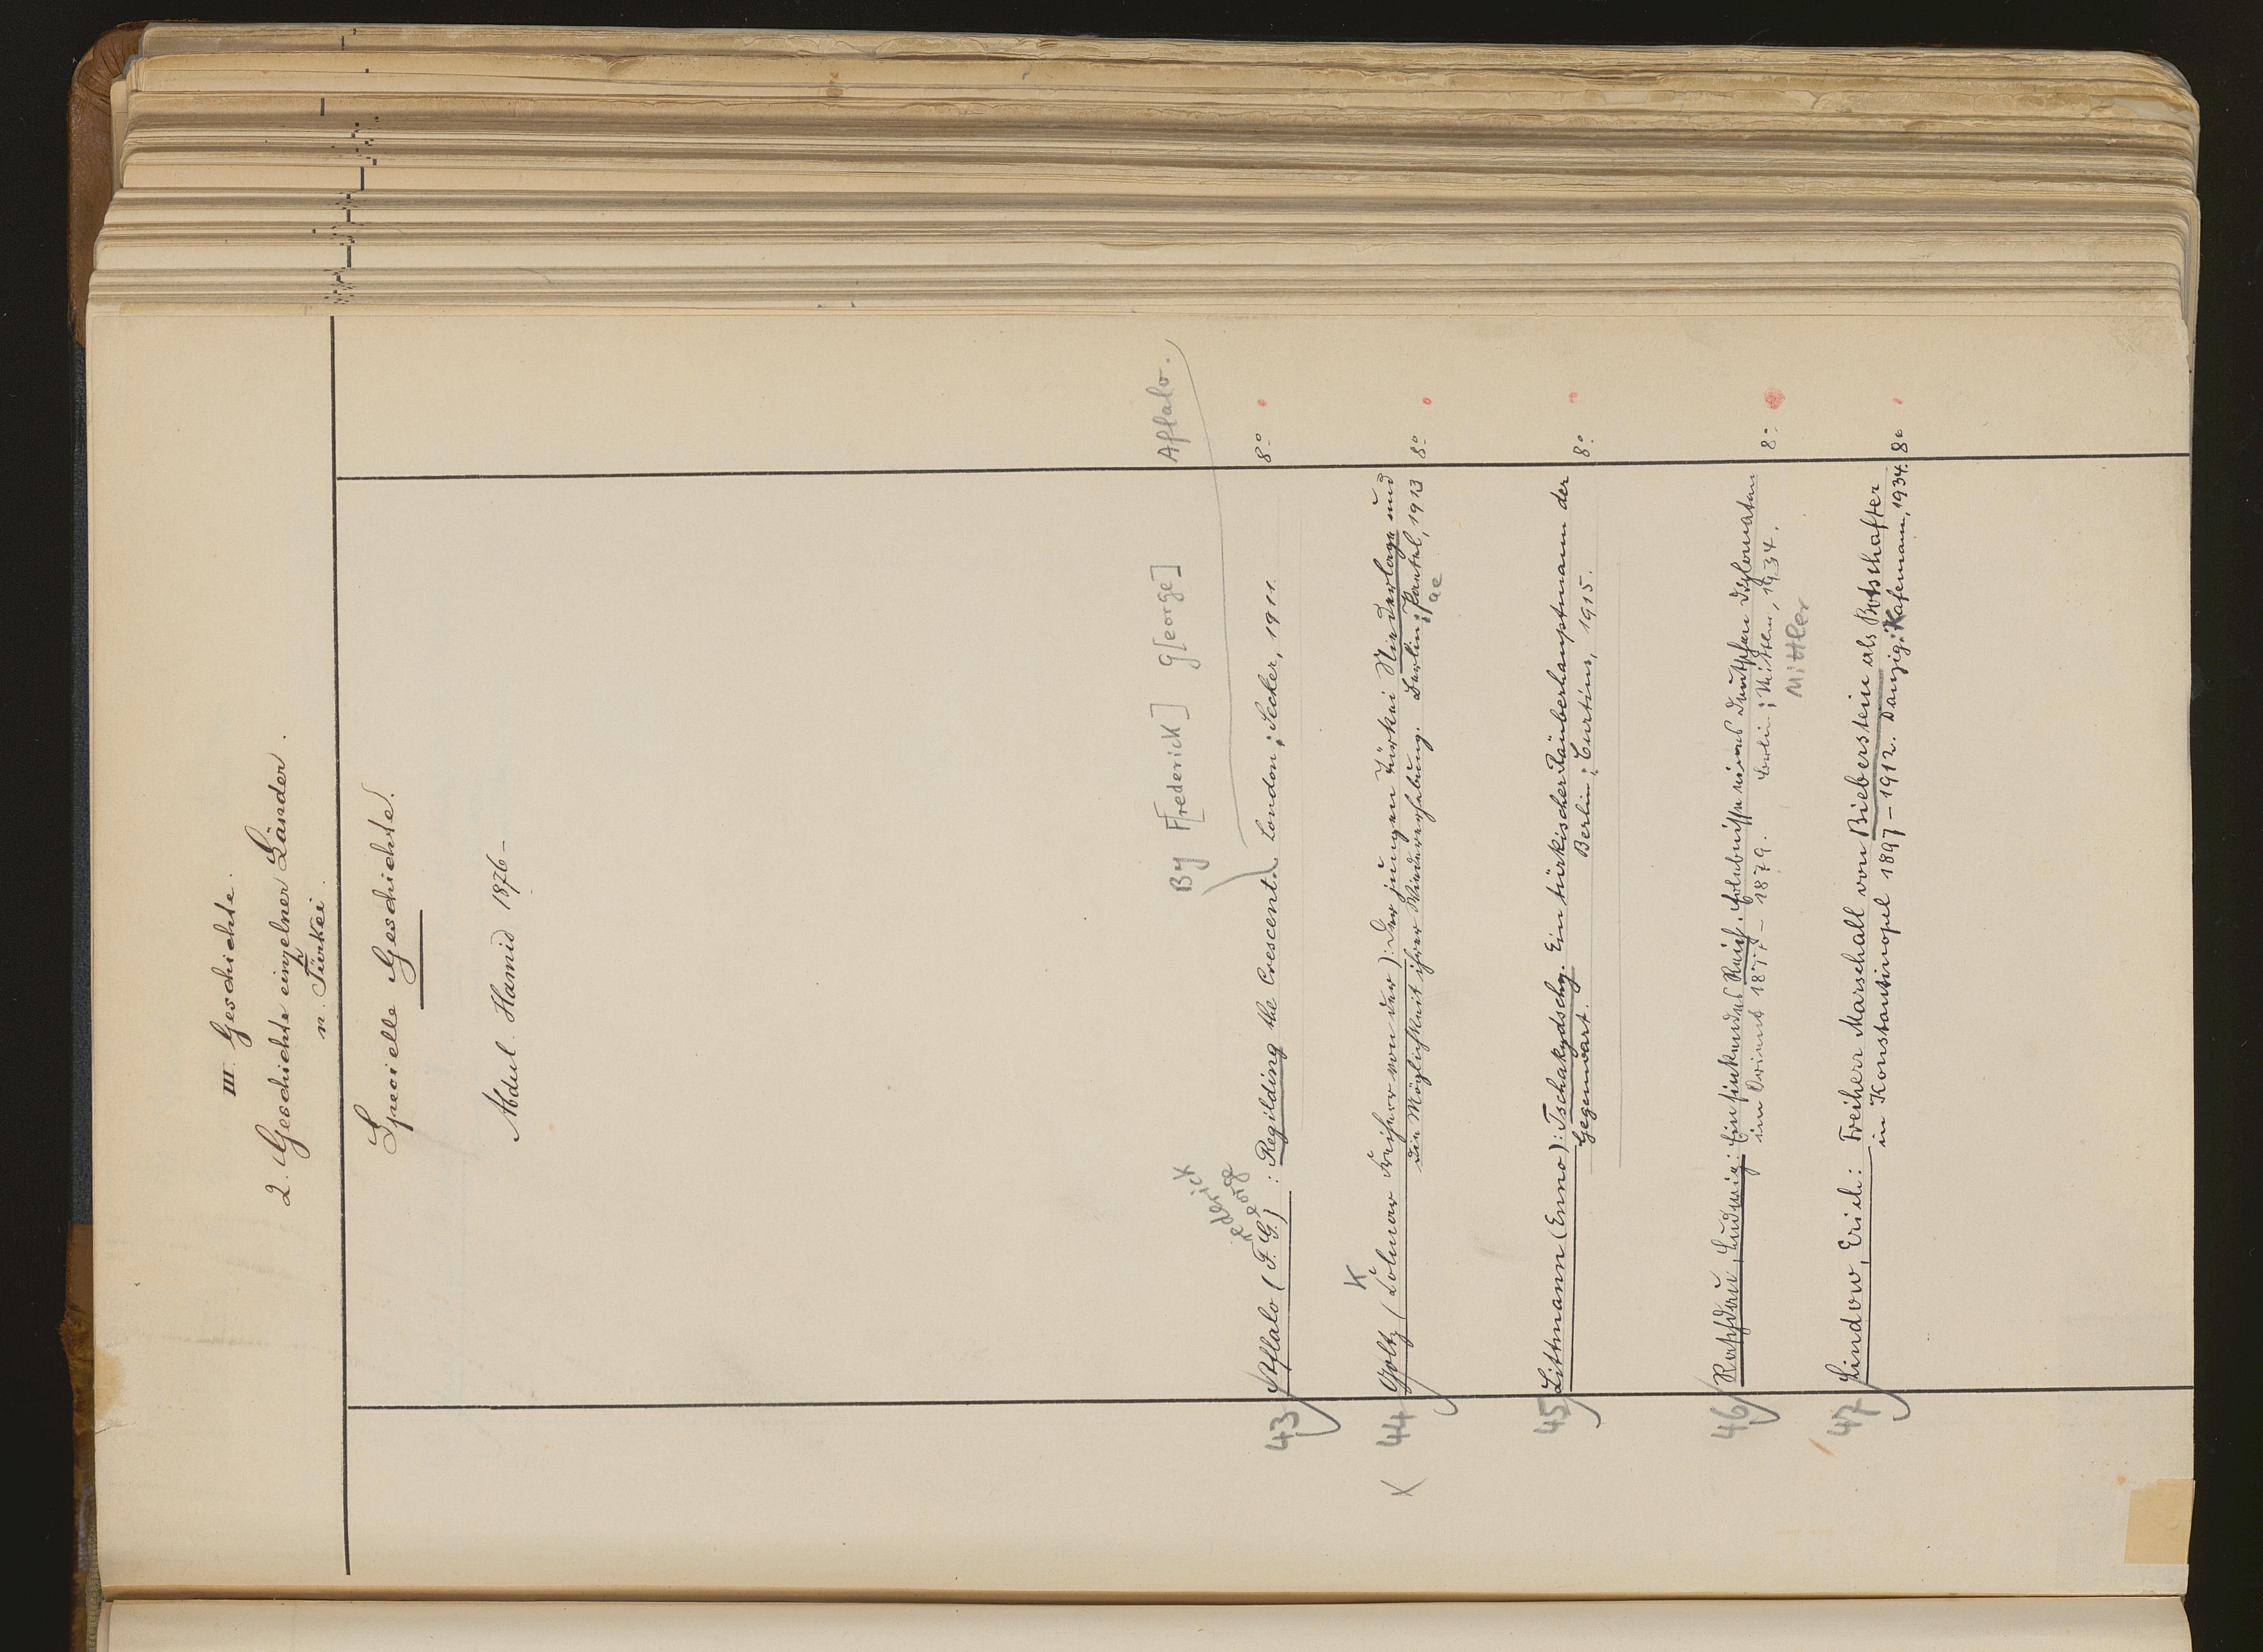 III. Geschichte.
2. Geschichte einzelner Länder.
n. Türkei.
Specielle Geschichte.
Abdul Hamid 1876-
By F[rederick] G[eorge] Aflalo.
ederick
eorge
43 Aflalo (F. G.) : Regilding the Crescent. London; Secker, 1911. 8°
K
X 44 Goltz (Colmar Freiherr von der): Der jungen Türkei Niederlage und
die Möglichkeit ihrer Wiedererhebung. Berlin; Paetel, 1913 8°
ae
45 Littmann (Enno): Tschakydschy. Ein türkischer Räuberhauptmann der
Gegenwart. Berlin; Curtius, 1915. 8°
46 Raschdau, Ludwig: Ein sinkendes Reich. Erlebnisse eines deutschen Diplomaten
im Orient 1877-1879. Berlin; Mittler, 1934. 8°
Mittler
47 Lindow, Erich: Freiherr Marschall von Bieberstein als Botschafter
in Konstantinopel 1897-1912. Danzig; Kafemann, 1934. 8°